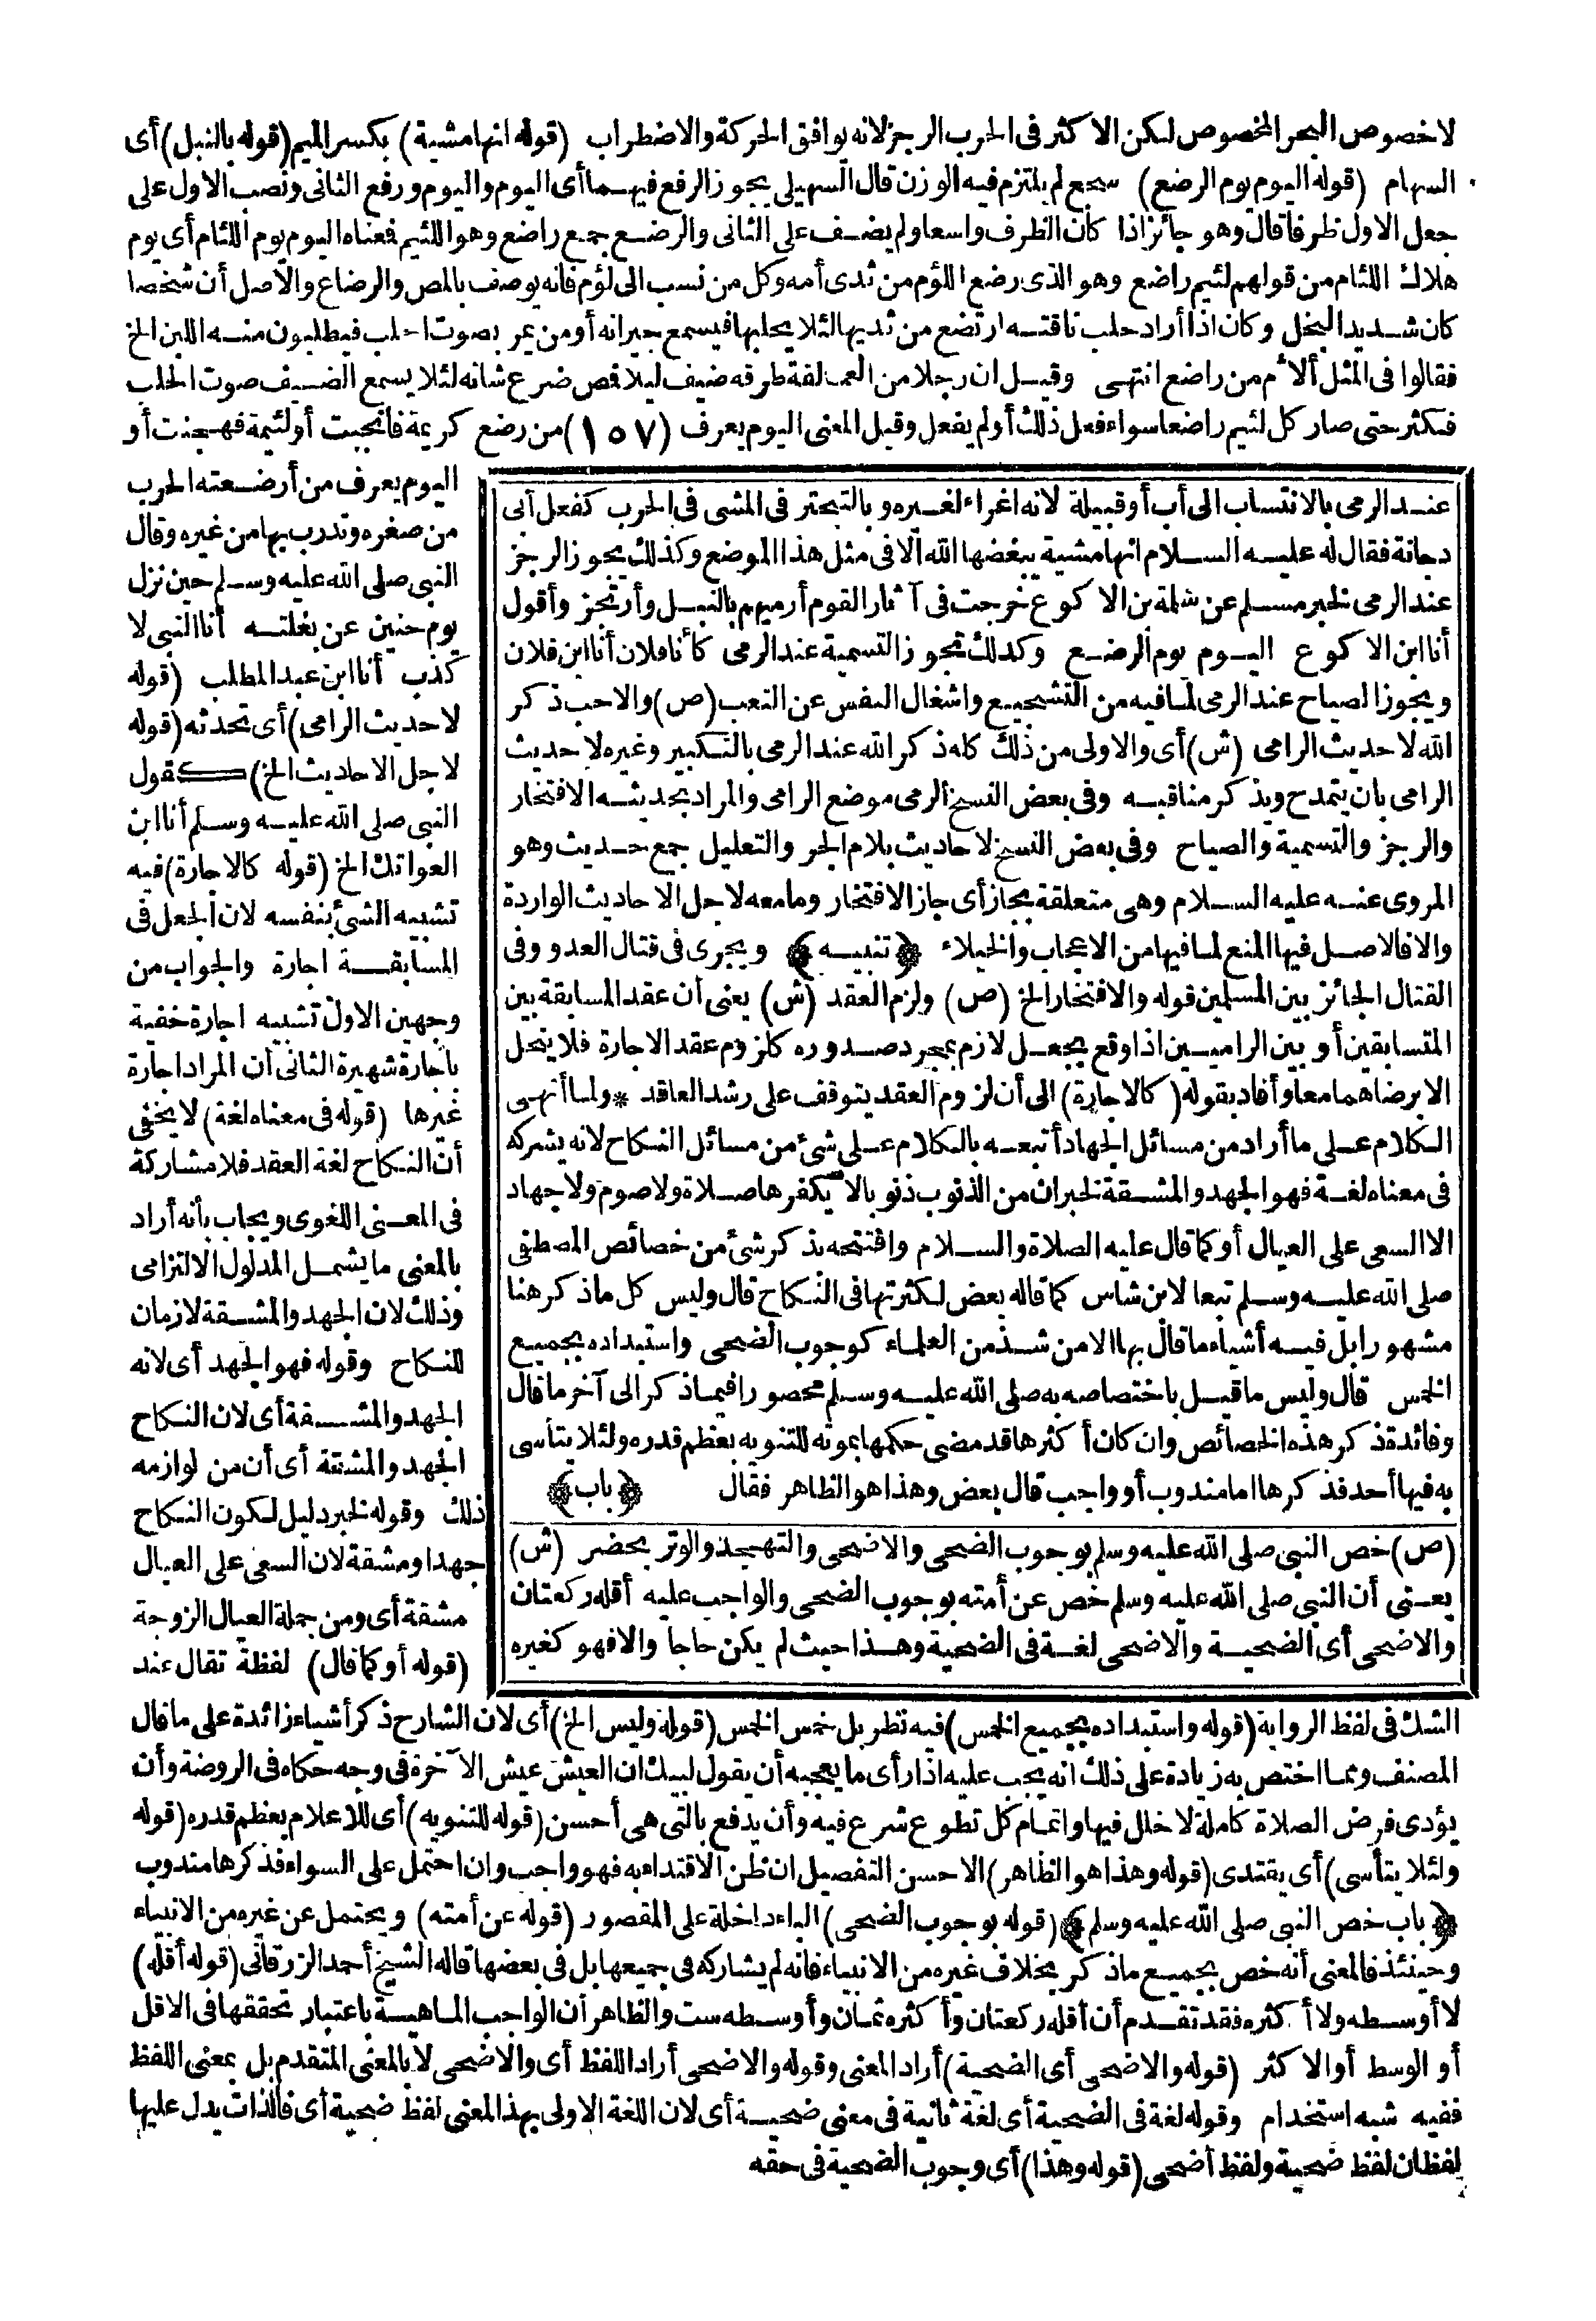 لاخصوص البحر المخصوص لكن الاكثر فى الحرب الرجز لانه يوافق الحركة والاضطراب (قوله انها مشية) بكسر الميم (قوله بالنبل) أى
السهام (قوله اليوم يوم الرضع) سجع لم يلتزم فيه الوزن قال السهيلى يجوز الرفع فيهما أى اليوم واليوم ورفع الثانى ونصب الاول على
جعل الاول ظرفا قال وهو جائز اذا كان الظرف واسعا ولم يضف على الثانى والرضع جمع راضع وهو اللئيم فمعناه اليوم يوم اللئام أى يوم
هلاك اللئام من قولهم لئيم راضع وهو الذى رضع اللؤم من ثدى أمه وكل من نسب الى لؤم فانه يوصف بالمص والرضاع والاصل أن شخصا
كان شديد البخل وكان اذا أراد حلب ناقته ارتضع من ثديها لئلا يحلبها فيسمع جيرانه أو من يمر بصوت الحلب فيطلبون منه اللبن الخ
فقالوا فى المثل ألأم من راضع انتهى وقيل ان رجلا من العمالقة طرقه ضيف ليلا فمص ضرع شاته لئلا يسمع الضيف صوت الحلب
فكثر حتى صار كل لئيم راضعا سواء فعل ذلك أو لم يفعل وقيل المعنى اليوم يعرف (١٥٧) من رضع كريمة فأنجبت أو لئيمة فهجنت أو
اليوم يعرف من أرضعته الحرب
من صغره وتدرب بها من غيره وقال
النبى صلى الله عليه وسلم حين نزل
يوم حنين عن بغلته أنا النبى لا
كذب أنا ابن عبد المطلب (قوله
لاحديث الرامى) أى تحدثه (قوله
لاجل الاحاديث الخ) كقول
النبى صلى الله عليه وسلم أنا ابن
العواتك الخ (قوله كالاجارة) فيه
تشبيه الشئ بنفسه لان الجعل فى
المسابقة اجارة والجواب من
وجهين الاول تشبيه اجارة خفية
باجارة شهيرة الثانى أن المراد اجارة
غيرها (قوله فى معناه لغة) لا يخفى
أن النكاح لغة العقد فلا مشاركة
فى المعنى اللغوى ويجاب بأنه أراد
بالمعنى ما يشمل المدلول الالتزامى
وذلك لان الجهد والمشقة لازمان
للنكاح وقوله فهو الجهد أى لانه
الجهد والمشقة أى لان النكاح
الجهد والمشقة أى أن من لوازمه
ذلك وقوله لخبر دليل لكون النكاح
جهدا ومشقة لان السعى على العيال
مشقة أى ومن جملة العيال الزوجة
(قوله أو كما قال) لفظة تقال عند
عند الرمى بالانتساب الى أب أو قبيلة لانه اغراء لغيره وبالتبختر فى المشى فى الحرب كفعل أبى
دجانة فقال له عليه السلام انها مشية يبغضها الله الا فى مثل هذا الموضع وكذلك يجوز الرجز
عند الرمى لخبر مسلم عن سلمة بن الاكوع خرجت فى آثار القوم أرميهم بالنبل وأرتجز وأقول
أنا ابن الاكوع اليوم يوم الرضع وكذلك تجوز التسمية عند الرمى كأنا فلان أنا ابن فلان
ويجوز الصياح عند الرمى لما فيه من التشجيع واشغال النفس عن التعب (ص) والاحب ذكر
الله لاحديث الرامى (ش) أى والاولى من ذلك كله ذكر الله عند الرمى بالتكبير وغيره لاحديث
الرامى بان يتمدح ويذكر مناقبه وفى بعض النسخ الرمى موضع الرامى والمراد بحديثه الافتخار
والرجز والتسمية والصياح وفى بعض النسخ لاحاديث بلام الجر والتعليل جمع حديث وهو
المروى عنه عليه السلام وهى متعلقة بجاز أى جاز الافتخار وما معه لاجل الاحاديث الواردة
والا فالاصل فيها المنع لما فيها من الاعجاب والخيلاء ﴿تنبيه﴾ ويجرى فى قتال العدو وفى
القتال الجائز بين المسلمين قوله والافتخار الخ (ص) ولزم العقد (ش) يعنى أن عقد المسابقة بين
المتسابقين أو بين الراميين اذا وقع بجعل لازم بمجرد صدوره كلزوم عقد الاجارة فلا ينحل
الا برضاهما معا وأفاد بقوله (كالاجارة) الى أن لزوم العقد يتوقف على رشد العاقد * ولما أنهى
الكلام على ما أراد من مسائل الجهاد أتبعه بالكلام على شئ من مسائل النكاح لانه يشركه
فى معناه لغة فهو الجهد والمشقة لخبر ان من الذنوب ذنوبا لا يكفرها صلاة ولا صوم ولا جهاد
الا السعى على العيال أو كما قال عليه الصلاة والسلام وافتتحه بذكر شئ من خصائص المصطفى
صلى الله عليه وسلم تبعا لابن شاس كما قاله بعض لكثرتها فى النكاح قال وليس كل ما ذكر هنا
مشهورا بل فيه أشياء ما قال بها الا من شذ من العلماء كوجوب الضحى واستبداده بجميع
الخمس قال وليس ما قيل باختصاصه به صلى الله عليه وسلم محصورا فيما ذكر الى آخر ما قال
وفائدة ذكر هذه الخصائص وان كان أكثرها قد مضى حكمها بموته للتنويه بعظم قدره ولئلا يتأسى
به فيها أحد فذكرها اما مندوب أو واجب قال بعض وهذا هو الظاهر فقال ﴿باب﴾
(ص) خص النبى صلى الله عليه وسلم بوجوب الضحى والاضحى والتهجد والوتر بحضر (ش)
يعنى أن النبى صلى الله عليه وسلم خص عن أمته بوجوب الضحى والواجب عليه أقله ركعتان
والاضحى أى الضحية والاضحى لغة فى الضحية وهذا حيث لم يكن حاجا والا فهو كغيره
الشك فى لفظ الرواية (قوله واستبداده بجميع الخمس) فيه نظر بل خمس الخمس (قوله وليس الخ) أى لان الشارح ذكر أشياء زائدة على ما قال
المصنف ومما اختص به زيادة على ذلك انه يجب عليه اذا رأى ما يعجبه أن يقول لبيك ان العيش عيش الآخرة فى وجه حكاه فى الروضة وأن
يؤدى فرض الصلاة كاملة لا خلل فيها واتمام كل تطوع شرع فيه وأن يدفع بالتى هى أحسن (قوله للتنويه) أى للاعلام بعظم قدره (قوله
ولئلا يتأسى) أى يقتدى (قوله وهذا هو الظاهر) الاحسن التفصيل ان ظن الاقتداء به فهو واجب وان احتمل على السواء فذكرها مندوب
﴿باب خص النبى صلى الله عليه وسلم﴾ (قوله بوجوب الضحى) الباء داخلة على المقصور (قوله عن أمته) ويحتمل عن غيره من الانبياء
وحينئذ فالمعنى أنه خص بجميع ما ذكر بخلاف غيره من الانبياء فانه لم يشاركه فى جميعها بل فى بعضها قاله الشيخ أحمد الزرقانى (قوله أقله)
لا أوسطه ولا أكثره فقد تقدم أن أقله ركعتان وأكثره ثمان وأوسطه ست والظاهر أن الواجب الماهية باعتبار تحققها فى الاقل
أو الوسط أو الاكثر (قوله والاضحى أى الضحية) أراد المعنى وقوله والاضحى أراد اللفظ أى والاضحى لا بالمعنى المتقدم بل بمعنى اللفظ
ففيه شبه استخدام وقوله لغة فى الضحية أى لغة ثانية فى معنى ضحية أى لان اللغة الاولى بهذا المعنى لفظ ضحية أى فالذات يدل عليها
لفظان لفظ ضحية ولفظ أضحى (قوله وهذا) أى وجوب الضحية فى حقه